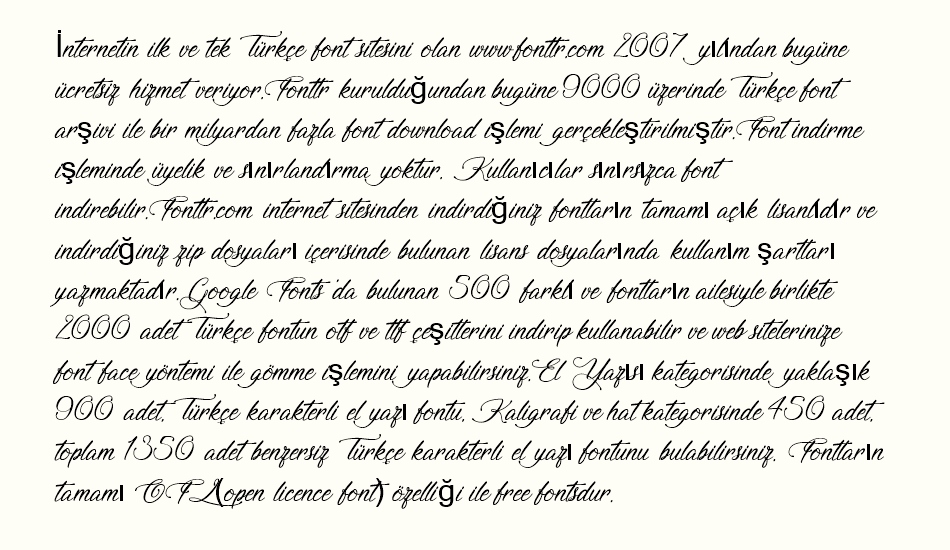 İnternetin ilk ve tek Türkçe font sitesini olan www.fonttr.com 2007 yılından bugüne
ücretsiz hizmet veriyor.Fonttr kurulduğundan bugüne 9000 üzerinde Türkçe font
arşivi ile bir milyardan fazla font download işlemi gerçekleştirilmiştir.Font indirme
işleminde üyelik ve sınırlandırma yoktur. Kullanıcılar sınırsızca font
indirebilir.Fonttr.com internet sitesinden indirdiğiniz fontların tamamı açık lisanlıdır ve
indirdiğiniz zip dosyaları içerisinde bulunan lisans dosyalarında kullanım şartları
yazmaktadır.Google Fonts'da bulunan 500 farklı ve fontların ailesiyle birlikte
2000 adet Türkçe fontun otf ve ttf çeşitlerini indirip kullanabilir ve web sitelerinize
font face yöntemi ile gömme işlemini yapabilirsiniz.El Yazısı kategorisinde yaklaşık
900 adet, Türkçe karakterli el yazı fontu, Kaligrafi ve hat kategorisinde 450 adet,
toplam 1350 adet benzersiz Türkçe karakterli el yazı fontunu bulabilirsiniz. Fontların
tamamı OFL(open licence font) özelliği ile free fontsdur.